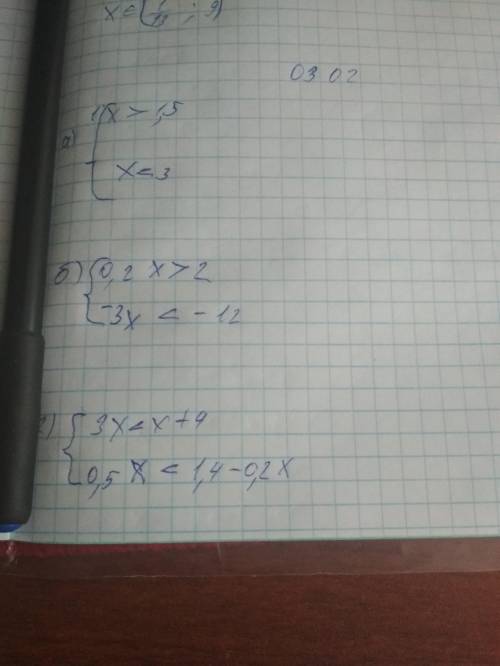 03 02
а) x > 1,5
x < 3
б) 0,2 x > 2
-3x < - 12
3x < x + 4
0,5 x < 1,4 - 0,2x